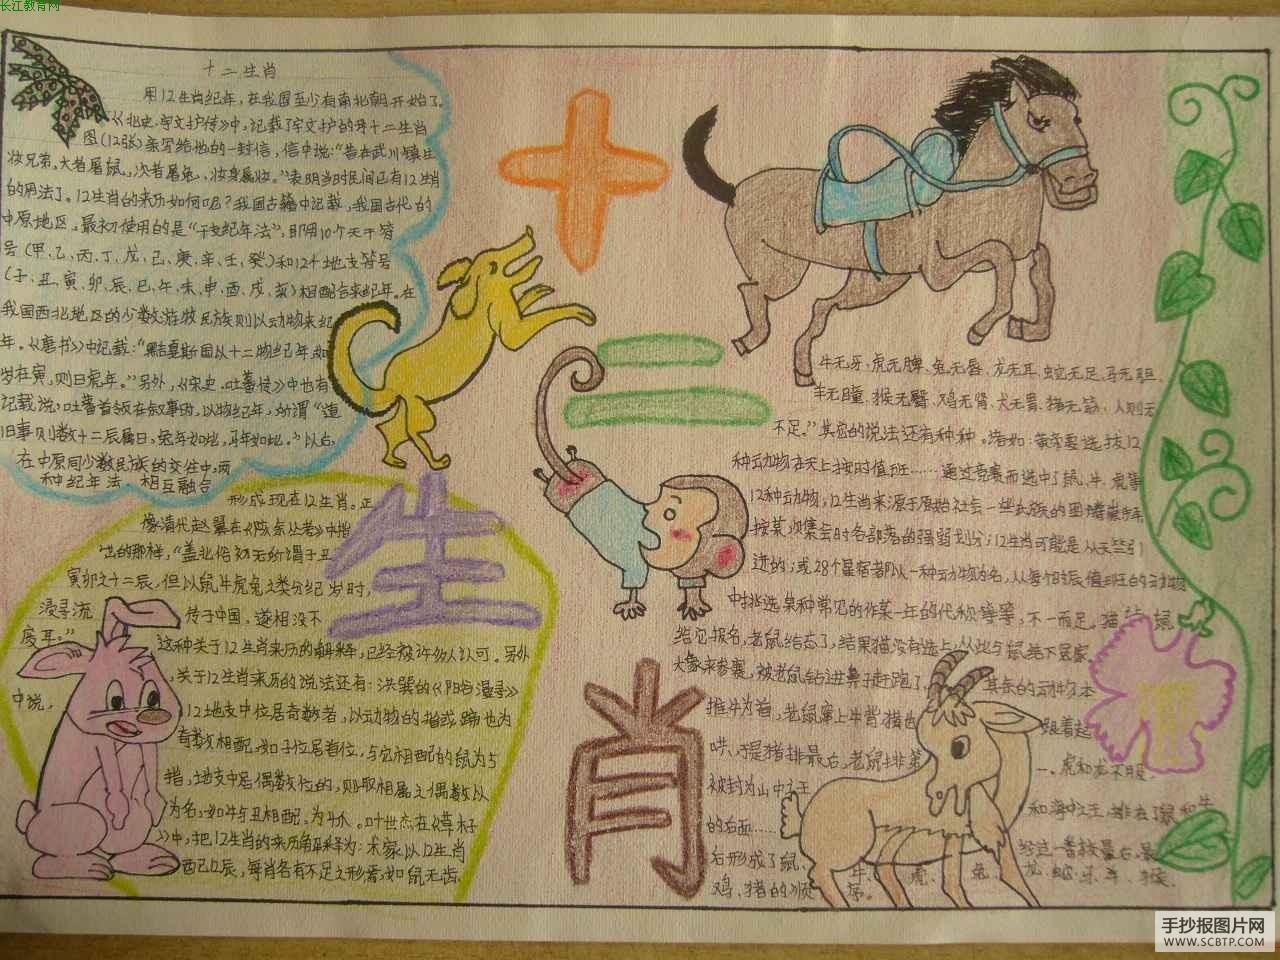 长江教育网
十二生肖
用12生肖纪年,在我国至少有南北朝开始了。
《北史·宇文护传》中,记载了宇文护的母十二生肖
图(12张)亲写给他的一封信,信中说:"昔在武川镇生
汝兄弟,大者属鼠,次者属兔,汝身属蛇。"表明当时民间已有12生肖
的用法了。12生肖的来历如何呢?我国古籍中记载,我国古代的
中原地区,最初使用的是"干支纪年法",即用10个天干符
号(甲、乙、丙、丁、戊、己、庚、辛、壬、癸)和12个地支符号
(子、丑、寅、卯、辰、巳、午、未、申、酉、戌、亥)相配合来纪年。在
我国西北地区的少数游牧民族则以动物来纪
年。《唐书》中记载:"黠戛斯国以十二物纪年,如
岁在寅,则曰虎年。"另外,《宋史·吐蕃传》中也有
记载说,吐蕃首领在叙事时,以物纪年,所谓"道
旧事则数十二辰属曰,兔年如此,马年如此。"以后,
在中原同少数民族的交往中,两
种纪年法 相互融合
形成现在12生肖。正
像清代赵翼在《陔余丛考》中指
出的那样,"盖北俗初无所谓子丑
寅卯之十二辰,但以鼠牛虎兔之类分纪岁时,
浸寻流 传于中国,遂相沿不
废耳。" 这种关于12生肖来历的解释,已经被许多人认可。另外
,关于12生肖来历的说法还有:洪巽的《阳谷漫录》
中说,
12地支中位居奇数者,以动物的指或蹄也为
奇数相配,如子位居首位,与它相配的鼠为5
指,地支中居偶数位的,则取相属之偶数以
为名,如牛与丑相配,为4爪。叶世杰在《草木子
》中,把12生肖的来历解释为:术家以12生肖
配12辰,每肖各有不足之形焉,如鼠无齿、
十
二
生
肖
牛无牙、虎无脾、兔无唇、龙无耳、蛇无足、马无胆、
羊无瞳、猴无臀、鸡无肾、犬无胃、猪无筋、人则无
不足。"其它的说法还有种种。诸如:黄帝要选拔12
种动物在天上按时值班……通过竞赛而选中了鼠、牛、虎等
12种动物;12生肖来源于原始社会一些氏族的图腾崇拜
按某次集会时各部落的强弱划分;12生肖可能是从天竺引
进的;或28个星宿都以一种动物为名,从每个时辰值班的动物
中挑选某种常见的作某一年的代称等等,不一而足。猫
给它报名,老鼠给忘了,结果猫没有选上,从此与鼠结下冤家。
大象来参赛,被老鼠钻进鼻子赶跑了, 其余的动物本
推牛为首,老鼠窜上牛背 猪也 跟着起
哄,于是猪排最后,老鼠排第 一。虎和龙不服,
被封为山中之王 和海中之王,排在了鼠和牛
的后面……
后形成了鼠、 牛、 虎、 兔、 龙、蛇、 羊、猴、
鸡、 猪的顺 序。
手抄报图片网
WWW.SCBTP.COM